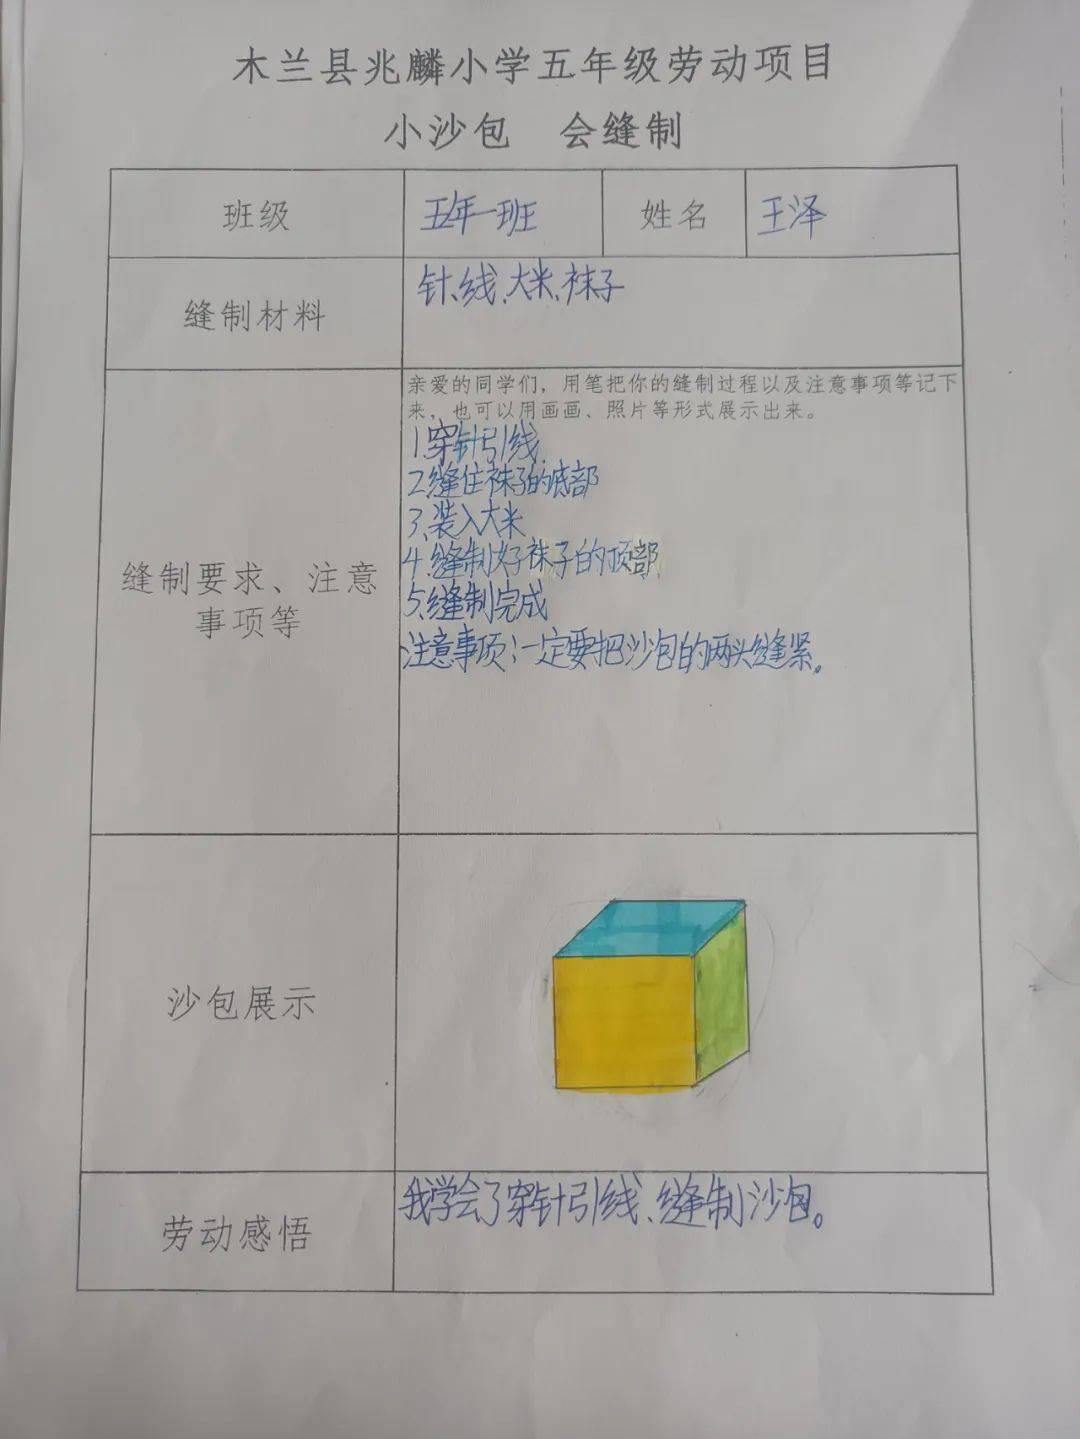 木兰县兆麟小学五年级劳动项目
小沙包 会缝制
班级 五年一班 姓名 王泽
缝制材料 针、线、大米、袜子
亲爱的同学们，用笔把你的缝制过程以及注意事项等记下
来，也可以用画画、照片等形式展示出来。
1.穿针引线
2.缝住袜子的底部
3.装入大米
4.缝制好袜子的顶部
5.缝制完成
注意事项：一定要把沙包的两头缝紧。
缝制要求、注意
事项等
沙包展示
劳动感悟 我学会了穿针引线、缝制沙包。